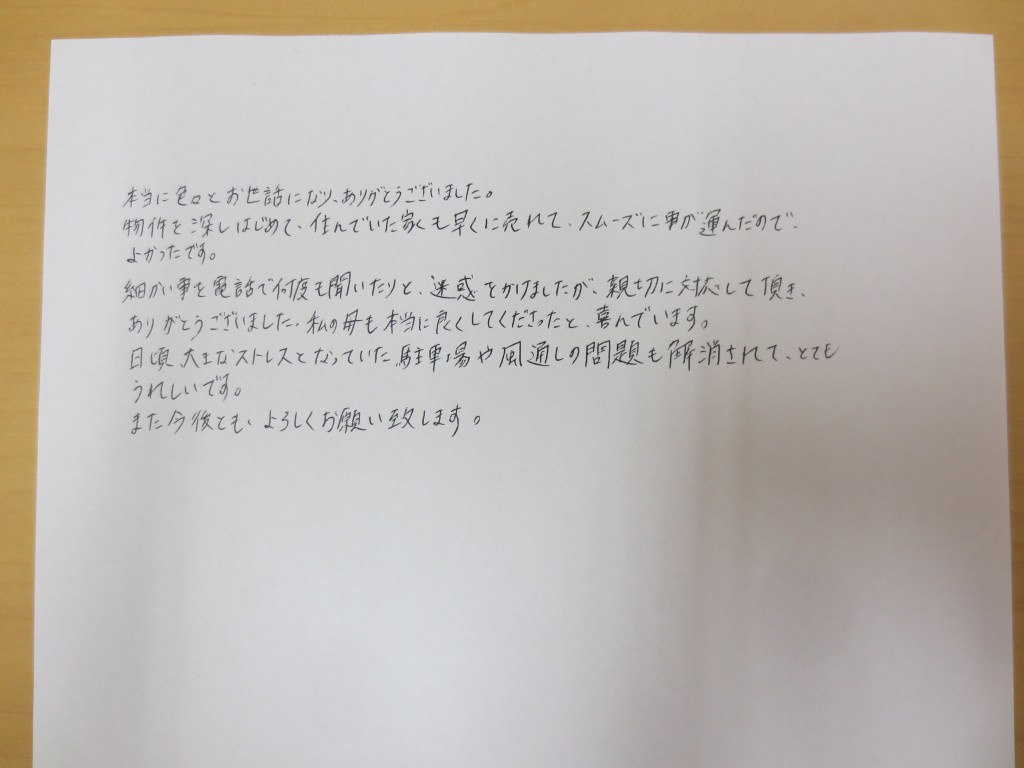 本当に色々とお世話になり、ありがとうございました。
物件を深しはじめて、住んでいた家も早くに売れて、スムーズに事が運んだので、
よかったです。
細かい事を電話で何度も聞いたりと、迷惑をかけましたが、親切に対応して頂き、
ありがとうございました。私の母も本当に良くしてくださったと、喜んでいます。
日頃、大きなストレスとなっていた駐車場や風通しの問題も解消されて、とても
うれしいです。
また今後とも、よろしくお願い致します。